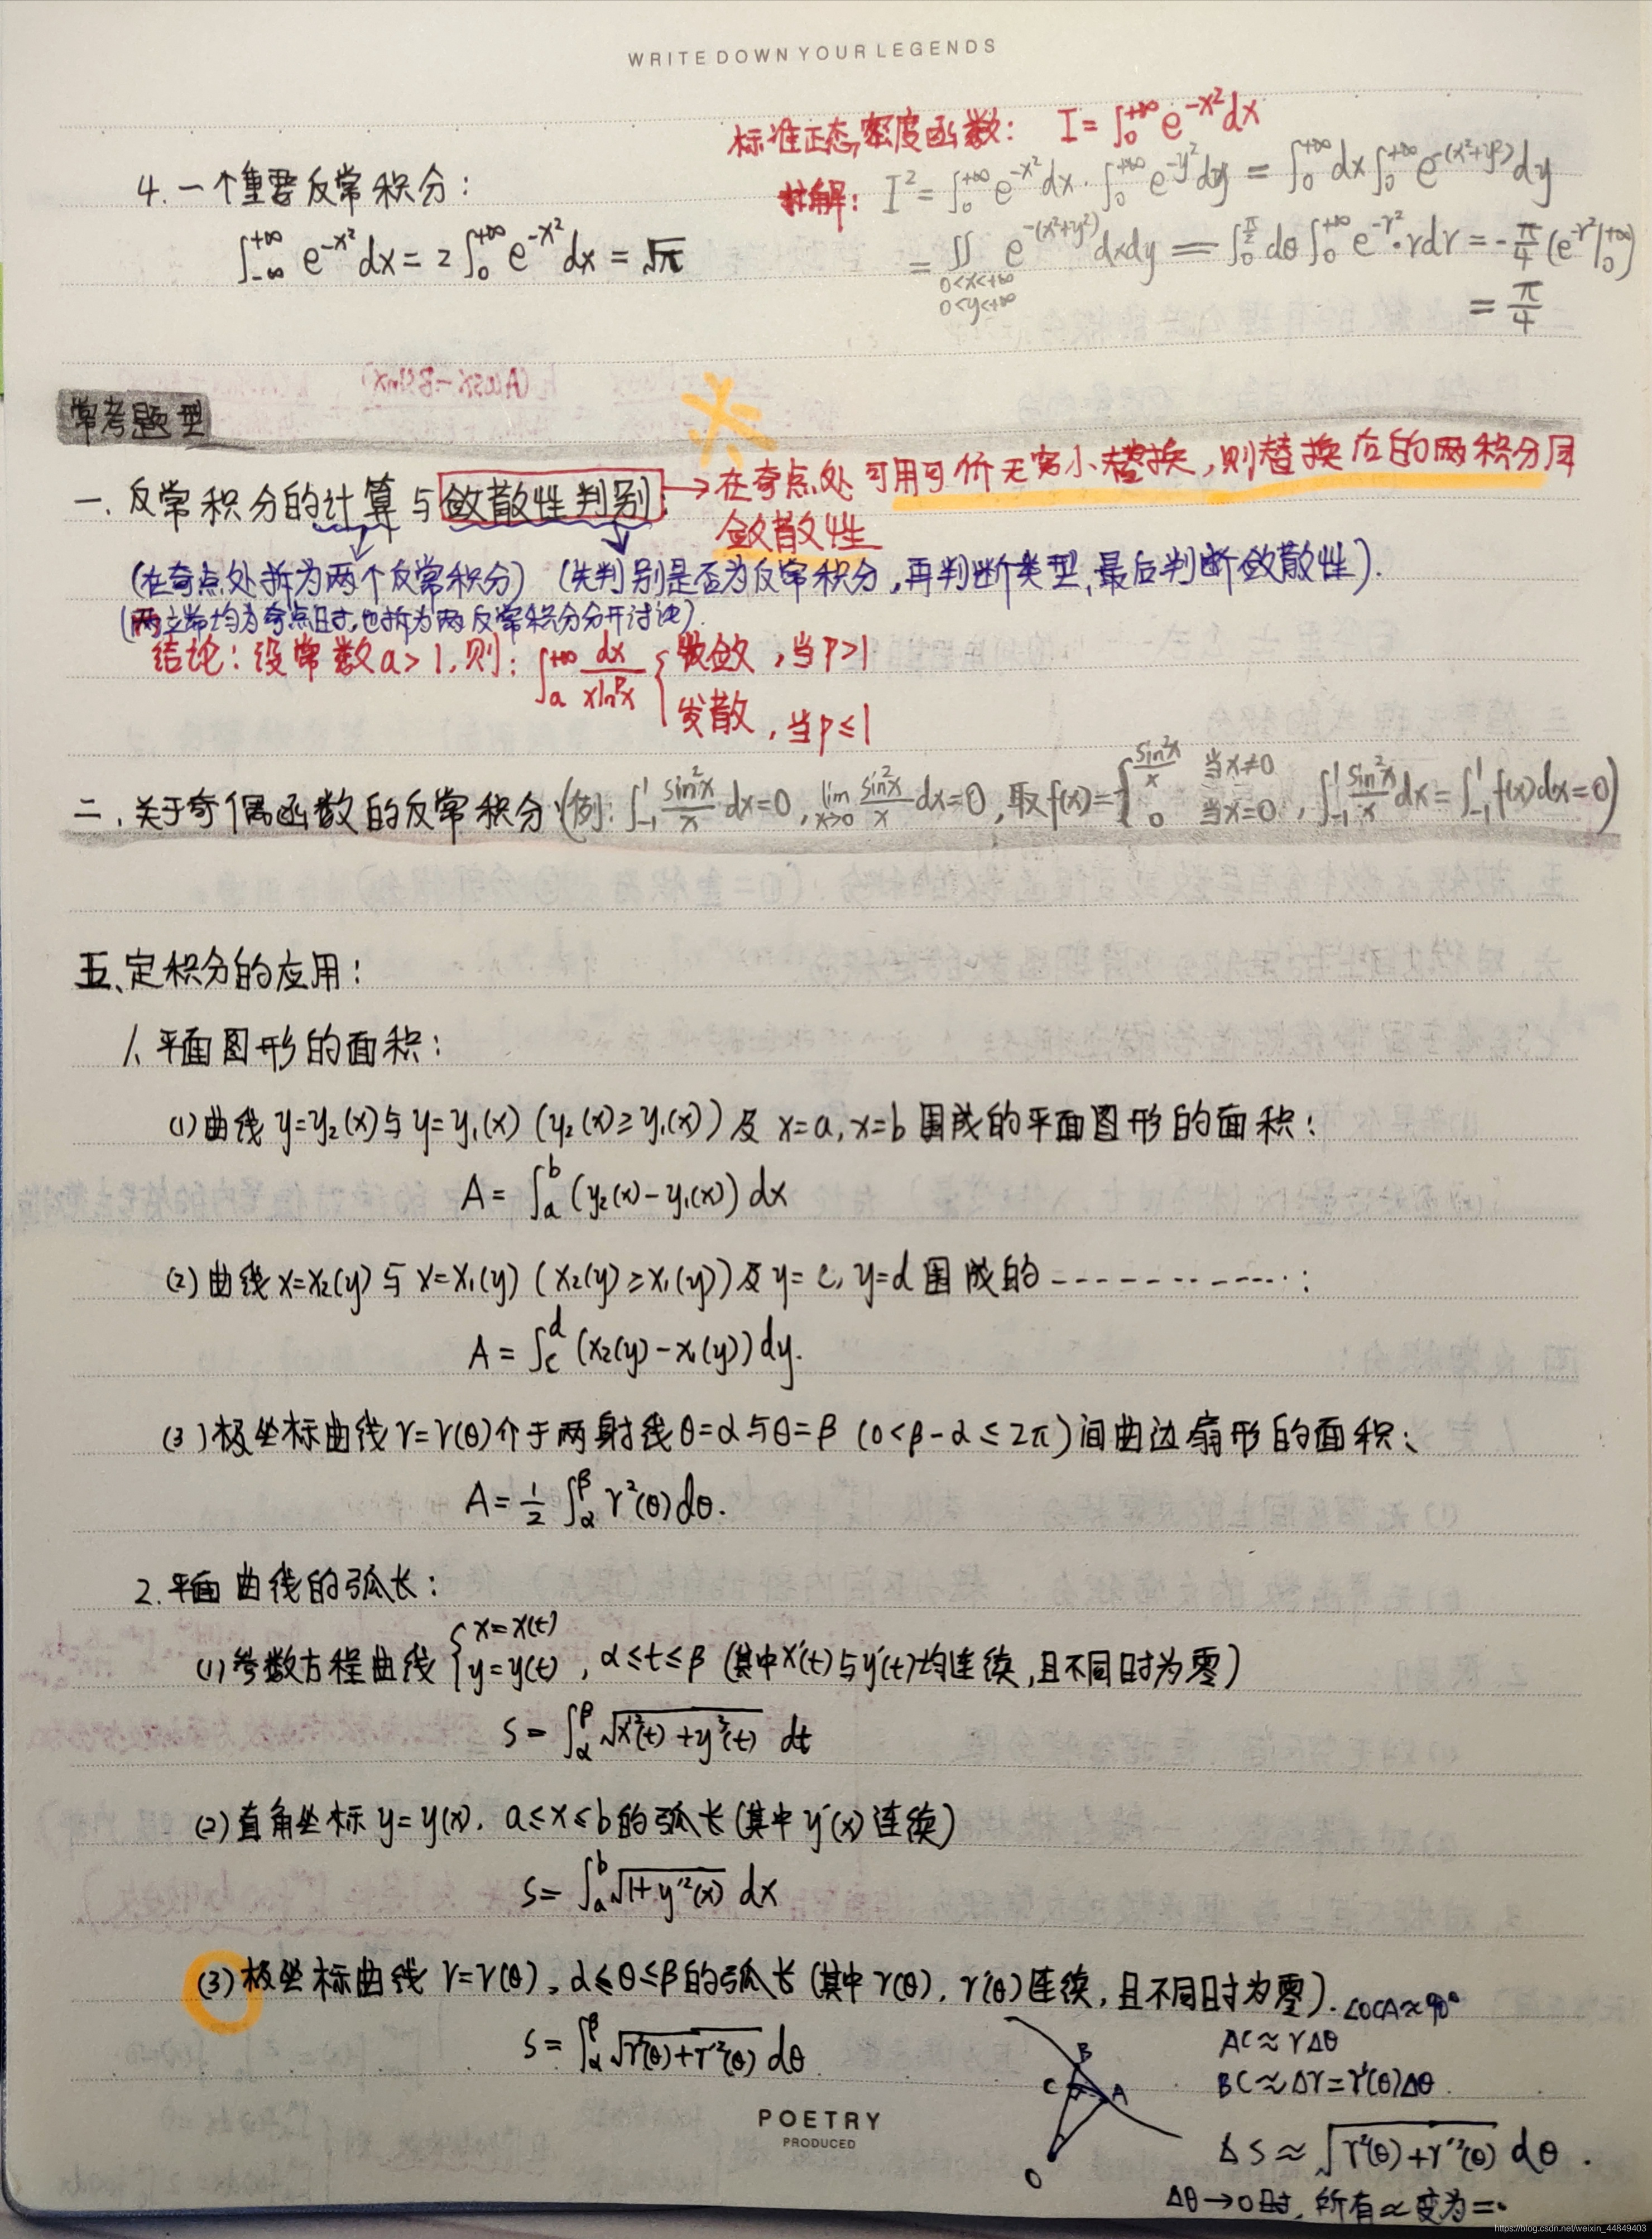 WRITE DOWN YOUR LEGENDS
标准正态密度函数： I=∫₀^{+∞} e^{-x²}dx
4.一个重要反常积分：
求解： I²=∫₀^{+∞} e^{-x²}dx·∫₀^{+∞} e^{-y²}dy = ∫₀^{+∞}dx∫₀^{+∞} e^{-(x²+y²)}dy
∫_{-∞}^{+∞} e^{-x²}dx = 2∫₀^{+∞} e^{-x²}dx = √π
= ∬_{0<x<+∞ 0<y<+∞} e^{-(x²+y²)}dxdy = ∫₀^{π/2}dθ∫₀^{+∞} e^{-r²}·rdr = -π/4 (e^{-r²}|₀^{+∞})
= π/4
常考题型
一.反常积分的计算与敛散性判别： →在奇点处可用可价无穷小替换,则替换后的两积分同
敛散性
(在奇点处拆为两个反常积分) (先判别是否为反常积分,再判断类型,最后判断敛散性).
(两立端均为奇点时,也拆为两反常积分分开讨论).
结论：设常数a>1,则： ∫ₐ^{+∞} dx/(xlnᵖx) { 收敛,当p>1
发散,当p≤1
二.关于奇偶函数的反常积分(例: ∫₋₁¹ sin²x/x dx=0, lim_{x→0} sin²x/x dx=0, 取f(x)={ sin²x/x 当x≠0
0 当x=0 , ∫₋₁¹ sin²x/x dx=∫₋₁¹ f(x)dx=0)
五、定积分的应用：
1.平面图形的面积：
(1)曲线y=y₂(x)与y=y₁(x) (y₂(x)≥y₁(x))及x=a,x=b围成的平面图形的面积：
A=∫ₐᵇ(y₂(x)-y₁(x))dx
(2)曲线x=x₂(y)与x=x₁(y) (x₂(y)≥x₁(y))及y=c,y=d围成的------------：
A=∫_c^d(x₂(y)-x₁(y))dy.
(3)极坐标曲线r=r(θ)介于两射线θ=α与θ=β (0<β-α≤2π)间曲边扇形的面积：
A=1/2 ∫_α^β r²(θ)dθ.
2.平面曲线的弧长：
(1)参数方程曲线 { x=x(t)
y=y(t) , α≤t≤β (其中x'(t)与y'(t)均连续,且不同时为零)
S=∫_α^β √(x'²(t)+y'²(t)) dt
(2)直角坐标y=y(x), a≤x≤b的弧长(其中y'(x)连续)
S=∫ₐᵇ√(1+y'²(x)) dx
(3)极坐标曲线r=r(θ), α≤θ≤β的弧长(其中r(θ), r'(θ)连续,且不同时为零).
S=∫_α^β √(r²(θ)+r'²(θ)) dθ
∠OCA≈90°
AC≈rΔθ
BC≈Δr=r'(θ)Δθ.
ΔS≈√(r²(θ)+r'²(θ)) dθ.
Δθ→0时,所有≈变为=.
B
C
A
O
POETRY
PRODUCED
https://blog.csdn.net/weixin_44849403